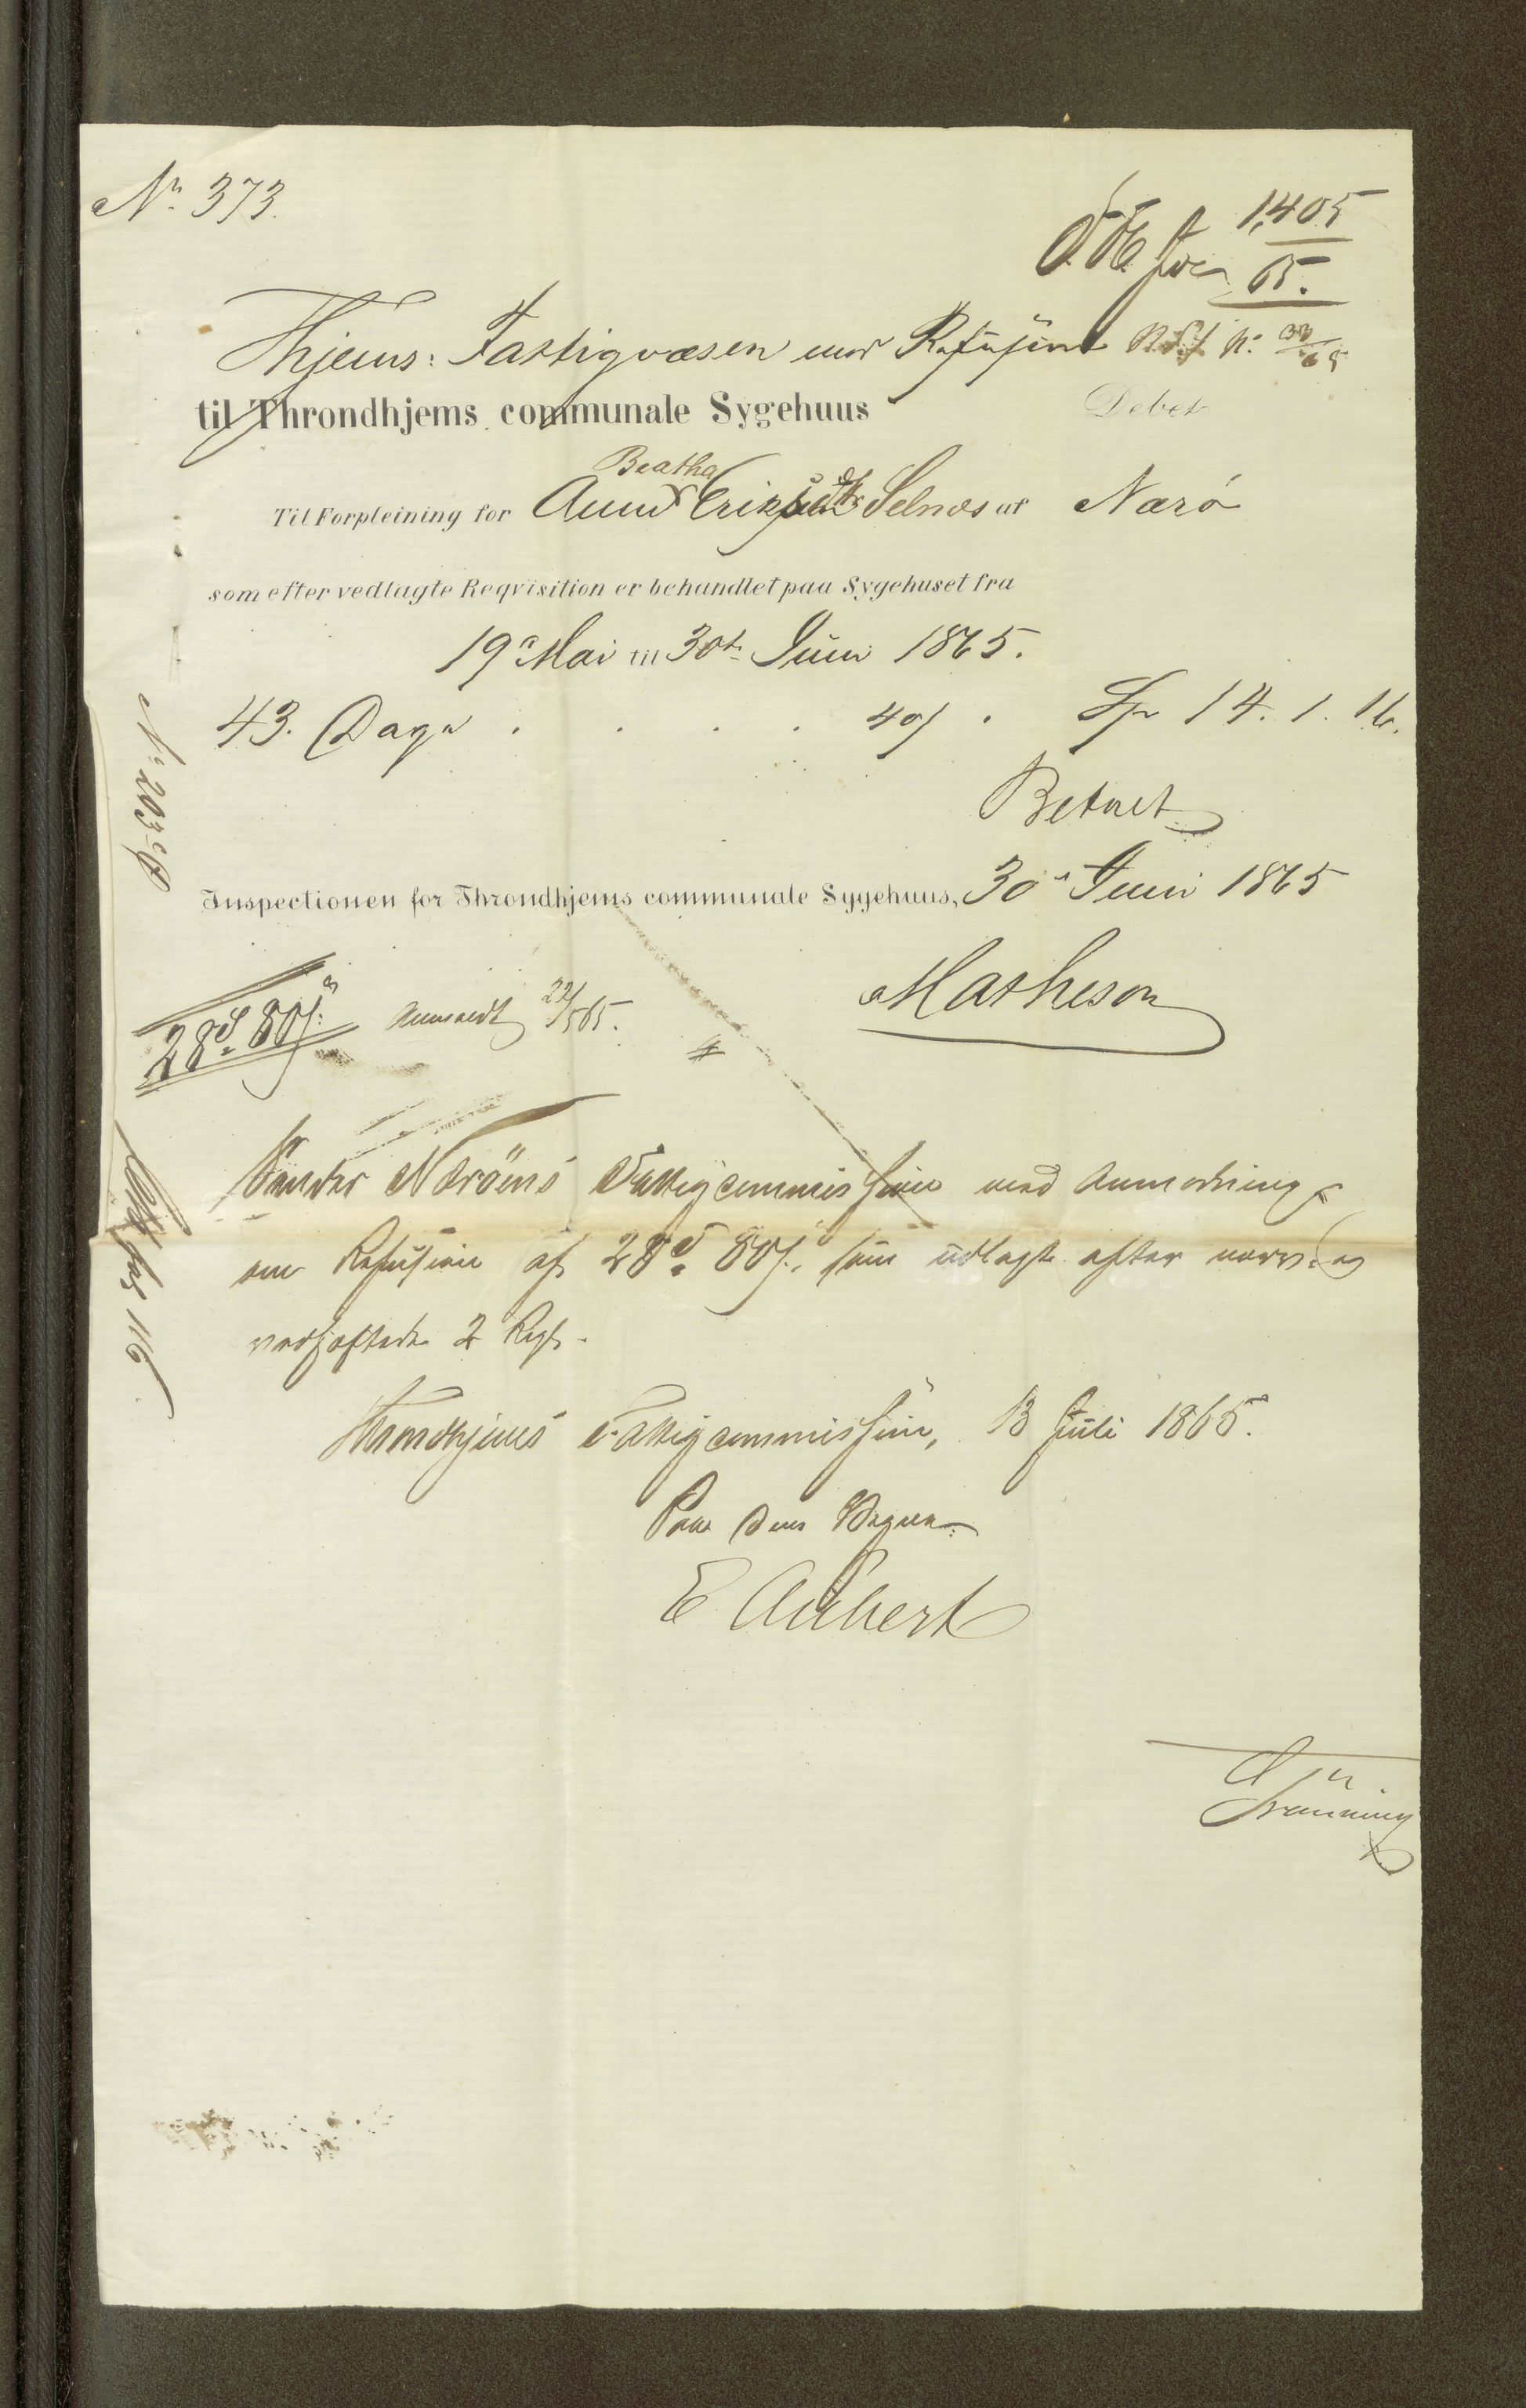 No. 373.
1405
65.
Thjems: Fattigvæsen mod Refusjon Ref N: 33/65
til Throndhjems communale Sygehuus Debet
Beatha
Til Forpleining for Anne Eriksdtr Selnæs af Nærø
som efter vedlagte Reqvisition er behandlet paa Sygehuset fra
19 Mai til 30te Juni 1865.
43. Dage . . . . 40ß . Sp 14. 1. 16.
Betalt
Inspectionen for Throndhjems communale Sygehuus, 30 Juni 1865
Matheson
28d 80ß. Anmeldt 22/5 65.
Sendes Nærøens Fattigcommission med Anmodning
om Refusion af 28d 80ß., som udlagt efter nærv. og
vedheftede 2 Regn.
Throndhjems Fattigcommission, 13 Juli 1865.
Paa Dens Vegne
E Aubert
No 203